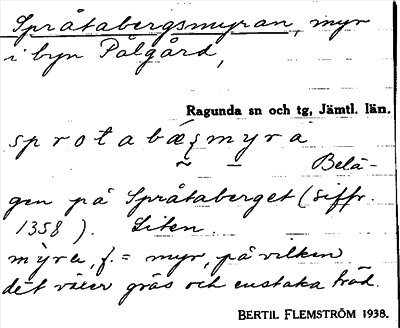 Språtabergsmyran, myr
i byn Pålgård,
Ragunda sn och tg, Jämtl. län.
sprotabæʂmyra
Belä-
gen på Språtaberget (siffr.
1358). Liten.
mỳra, f. = myr, på vilken
det växer gräs och enstaka träd.
BERTIL FLEMSTRÖM 1938.